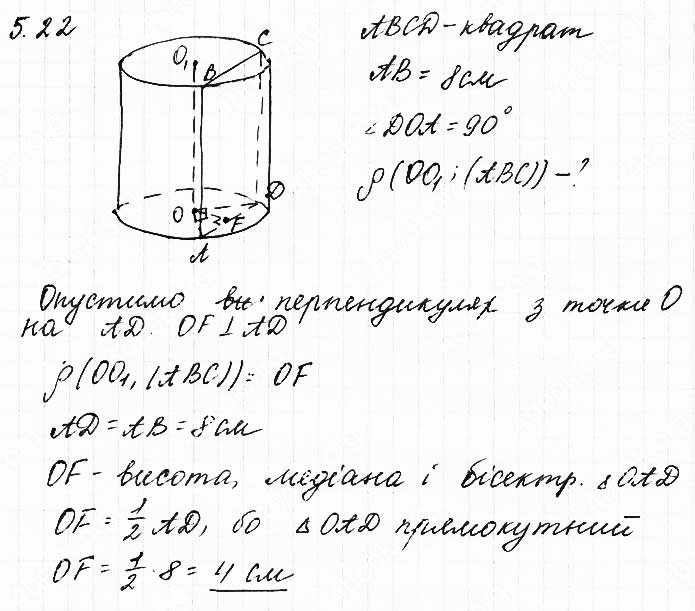 5.22
ABCD - квадрат
AB = 8 см
∠DOA = 90°
ρ(OO₁; (ABC)) - ?
O₁
C
B
D
O
F
A
Опустимо перпендикуляр з точки O
на AD. OF ⊥ AD
ρ(OO₁, (ABC)) = OF
AD = AB = 8 см
OF - висота, медіана і бісектр. △OAD
OF = 1/2 AD, бо △OAD прямокутний
OF = 1/2 · 8 = 4 см